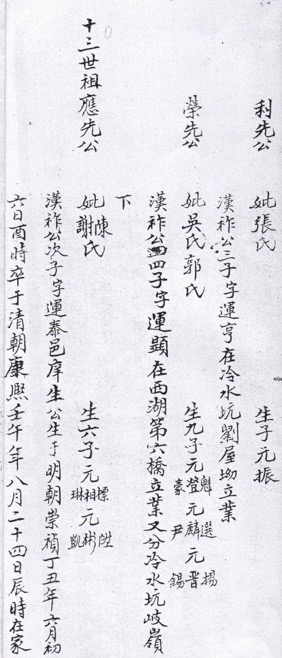 利先公 妣張氏 生子元振
漢祚公三子字運亨在冷水坑劉屋坳立業
榮先公 妣吳氏郭氏 生九子元魁登豪元選麟尹元揚晋錫
漢祚公四子字運顕在西湖第六橋立業又分冷水坑岐嶺
下
十三世祖應先公 妣陳氏謝氏 生六子元標相琳元陞彬凱
漢祚公次子字運泰邑庠生公生于明朝崇禎丁丑年六月初
六日酉時卒于清朝康熙壬午年八月二十四日辰時在家